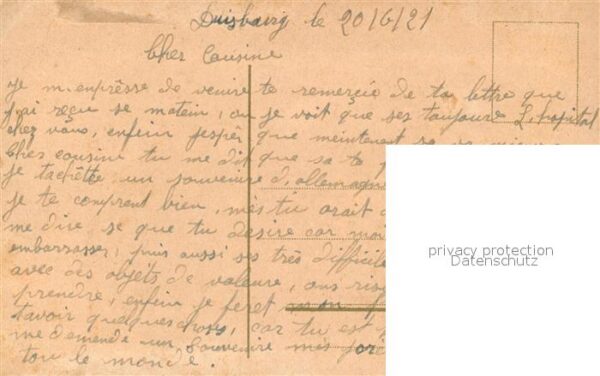 Duisbourg le 20/6/21
Cher Cousine
Je m,enprêsse de venire te remercie de ta lettre que
j'ai reçu se matein, ou je voit que ses toujours L,hopital
chez vous, enfien j'espèr que meintenent sa va
Cher cousine tu me dit que sa te
je t'achêtte un souvenire d,allemagne
je te comprent bien, mès tu orait
me dire, se que tu desire car moi
embarrasser, puis aussi ses très difficile
avec des objets de valeure, ons
prendre, enfien je feret mon
t'avoir quelques chose, car tu est
me demende un souvenire mès
tou le monde.
privacy protection
Datenschutz